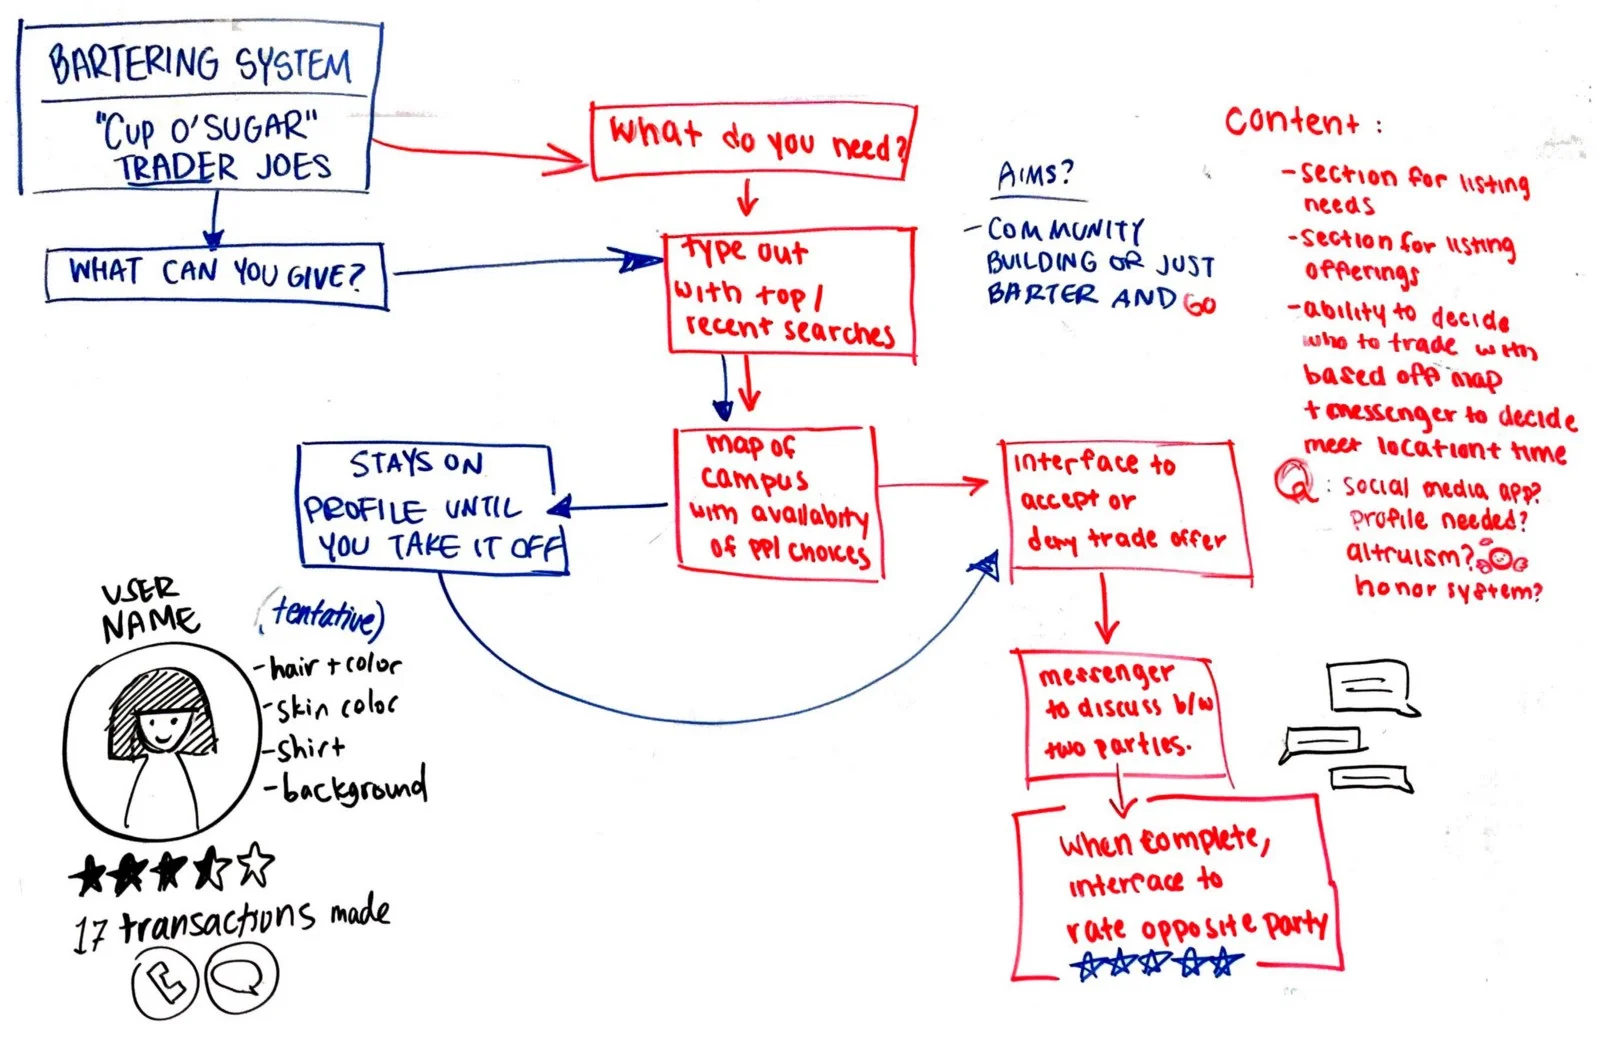 BARTERING SYSTEM
"CUP O'SUGAR"
TRADER JOES
WHAT CAN YOU GIVE?
What do you need?
type out
with top/
recent searches
map of
campus
with availabity
of ppl choices
STAYS ON
PROFILE UNTIL
YOU TAKE IT OFF
interface to
accept or
deny trade offer
messenger
to discuss b/w
two parties.
When complete,
interface to
rate opposite party
AIMS?
- COMMUNITY
BUILDING OR JUST
BARTER AND GO
Content:
- section for listing
needs
- section for listing
offerings
- ability to decide
who to trade with
based off map
+ messenger to decide
meet location + time
Q: social media app?
profile needed?
altruism?
honor system?
USER
NAME
(tentative)
- hair + color
- skin color
- shirt
- background
17 transactions made